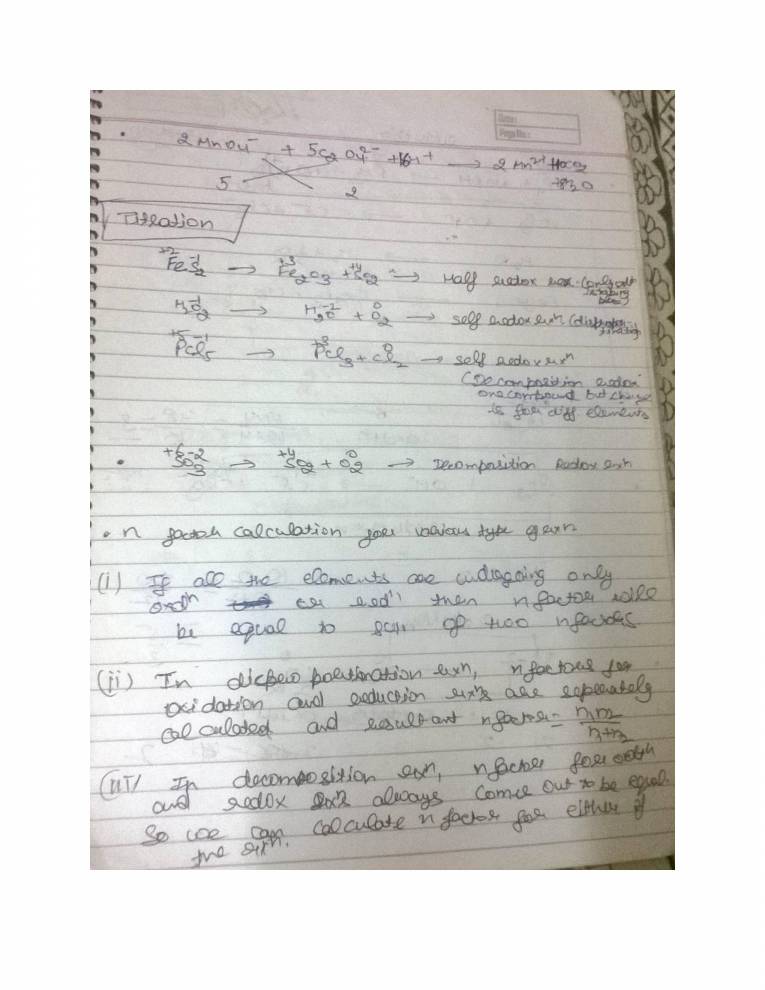 Date:
Page No.:
• 2MnO4⁻ + 5C2O4²⁻ + 16H⁺ → 2Mn²⁺ + 10CO2
+ 8H2O
5 2
Titration
+2 -1 +3 +4
FeS2 → Fe2O3 + SO2 → Half redox rxn. (only oxdⁿ
-1 -2 0
H2O2 → H2O + O2 → self redox rxn (disproportionation)
+5 -1 +3 0
PCl5 → PCl3 + Cl2 → self redox rxn
(Decomposition redox
one compound but change
is for diff elements
+6 -2 +4 0
• SO3 → SO2 + O2 → Decomposition Redox rxn
• n factor calculation for various type of rxn
(i) If all the elements are undergoing only
oxdⁿ or redⁿ then n factor will
be equal to sum of two n factors
(ii) In disproportination rxn, n factors for
oxidation and reduction rxns are seperately
calculated and resultant n factor = n1n2/n1+n2
(iii) In decomposition rxn, n factor for oxdn
and redox rxn always come out to be equal
So we can calculate n factor for either of
the rxn.